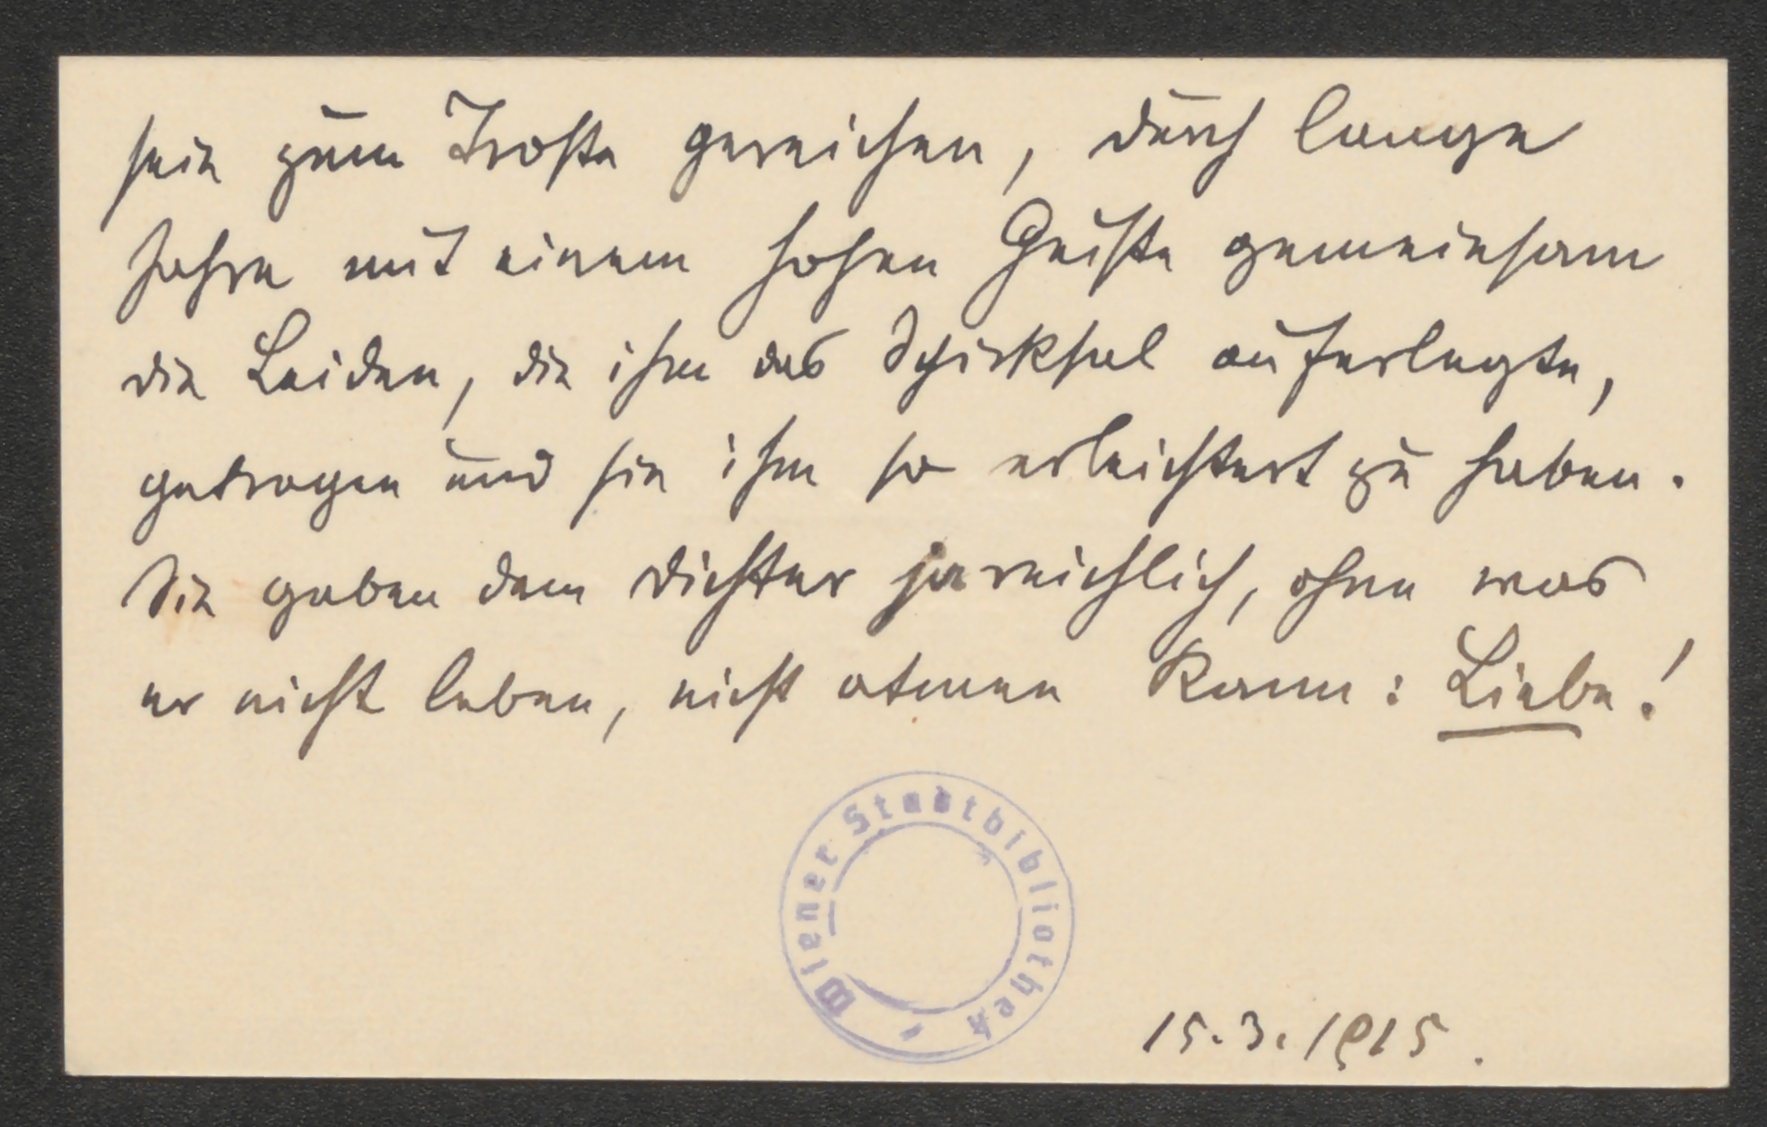 sein zum Troste gereichen, durch lange
Jahre mit einem hohen Geiste gemeinsam
die Leiden, die ihm das Schicksal auferlegte,
getragen und sie ihm so erleichtert zu haben.
Sie gaben dem Dichter ja reichlich, ohne was
er nicht leben, nicht atmen kann: Liebe!
Wiener Stadtbibliothek
15.3.1915.